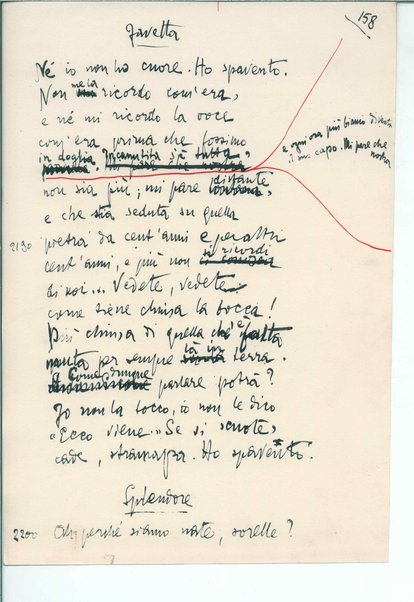 158
Favetta
Né io non ho cuore. Ho spavento.
Non me la ricordo com'era,
e né mi ricordo la voce
com'era prima che fossimo
in doglia. Incanutita s'è tutta,
e ogni ora più bianco diventa
il suo capo. Mi pare che
nostra
non sia più; mi pare distante,
e che sia seduta su quella
2190 pietra da cent'anni e per altri
cent'anni, e più non si ricordi
di noi... Vedete, vedete
come tiene chiusa la bocca!
Più chiusa di quella ch'è fatta
muta per sempre là in terra.
E Come dunque parlare potrà?
Io non la tocco, io non le dico
"Ecco viene." Se si scuote,
cade, stramazza. Ho spavento.
Splendore
2200 Oh, perché siamo nate, sorelle?